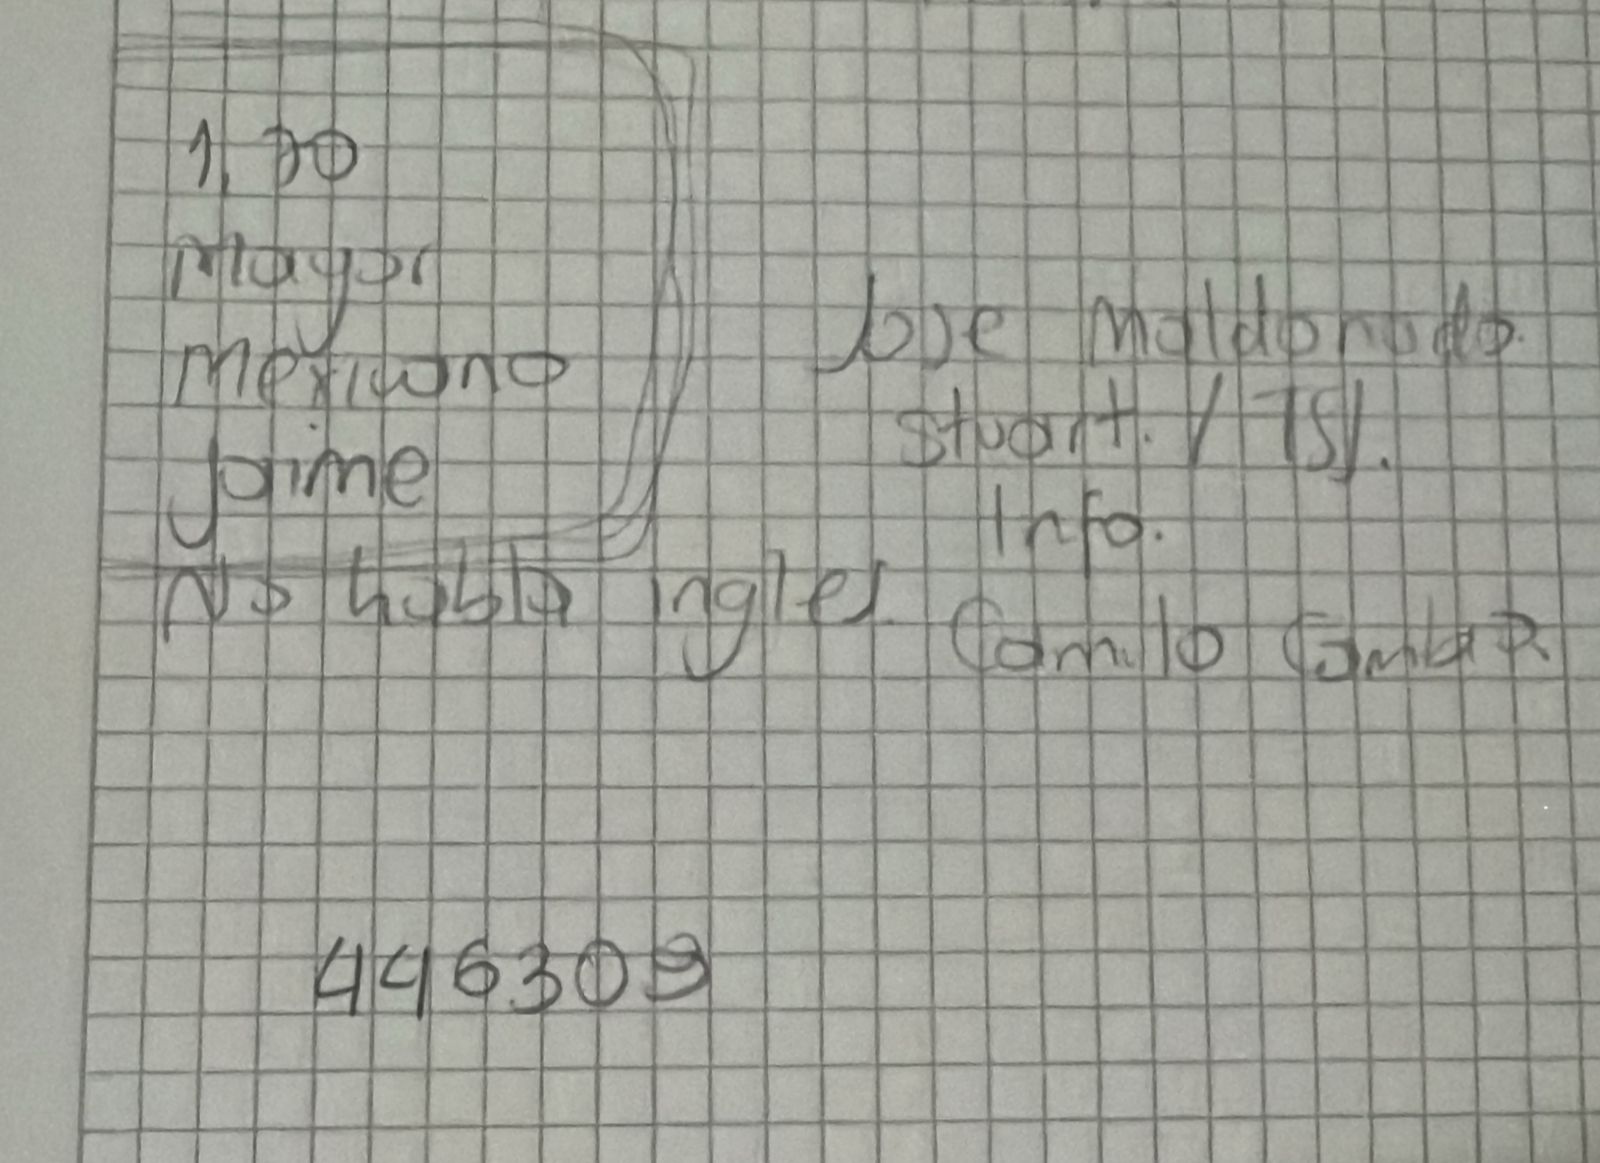 1.70
Mayor
Mexicano
Jaime
No habla ingles
Jose Maldonado.
Stuart. / TSI.
Info.
Camilo
446309